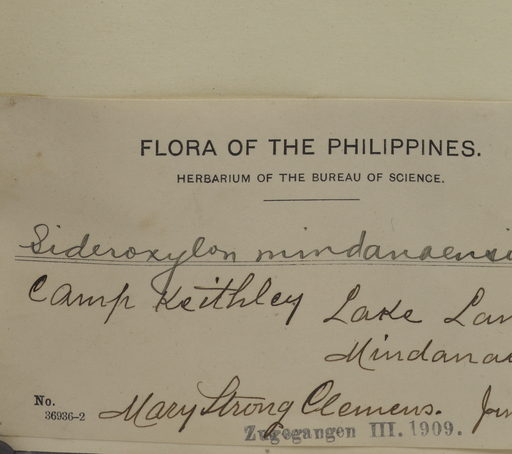 FLORA OF THE PHILIPPINES.
HERBARIUM OF THE BUREAU OF SCIENCE.
Sideroxylon mindanaensi
Camp Keithley Lake Lan
Mindana
No.
36936-2 Mary Strong Clemens. Jun
Zugegangen III. 1909.